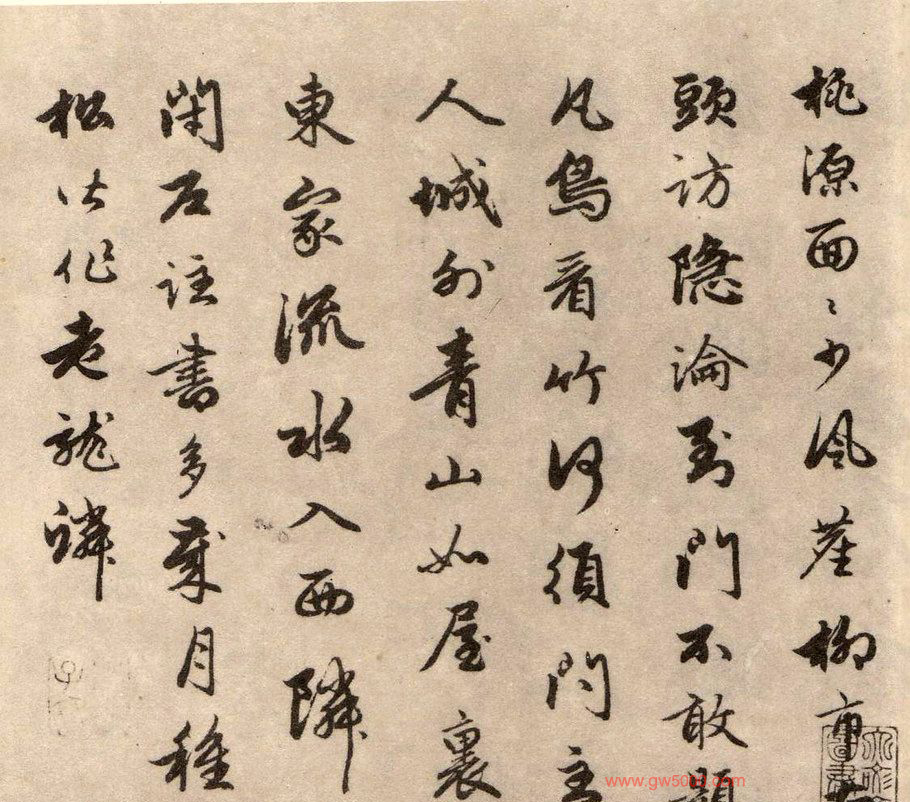 桃源面〻少風塵柳市
頭訪隱淪到門不敢題
凡鳥看竹何須問主
人城外青山如屋裏
東家流水入西隣
閉戶註書多歲月種
松皆作老龍鱗